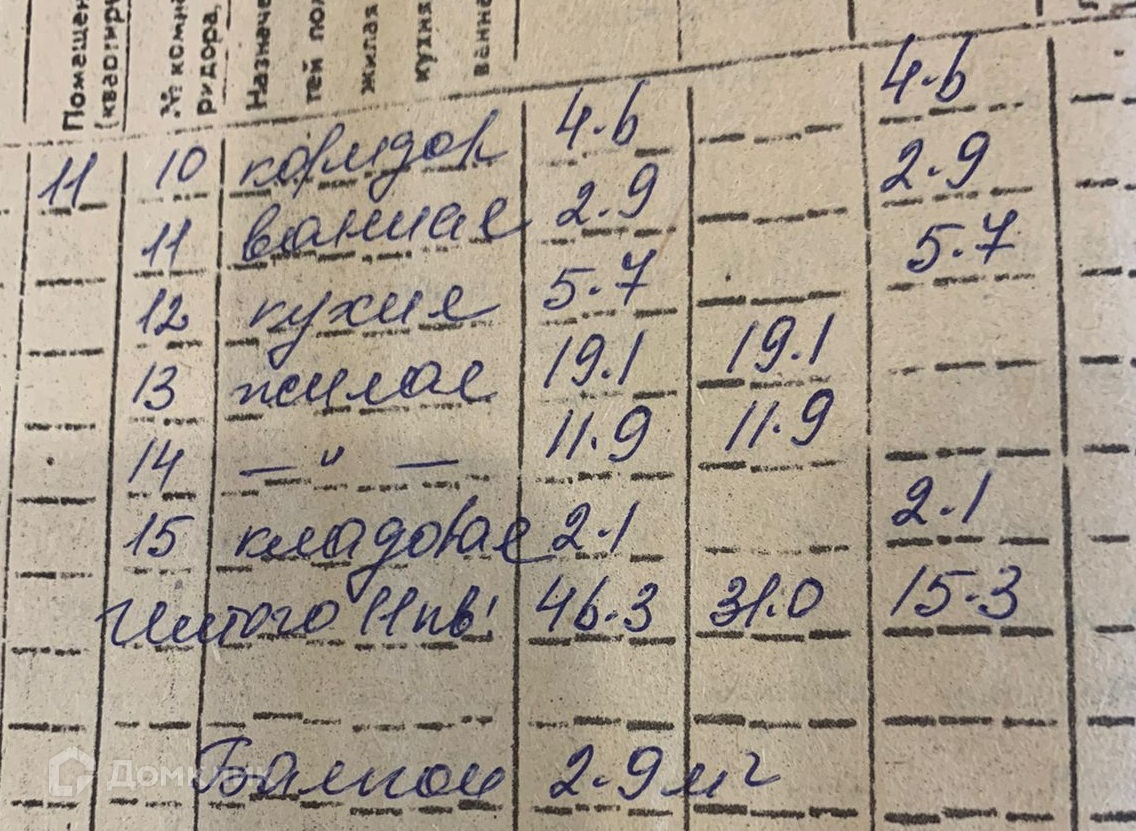 Помещен
(квартир
№ комн
ридора,
Назначе
тей пол
жилая
кухня
ванна
11 10 коридор 4.6 4.6
11 ванная 2.9 2.9
12 кухня 5.7 5.7
13 жилая 19.1 19.1
14 —"— 11.9 11.9
15 кладовая 2.1 2.1
Итого 11 кв! 46.3 31.0 15.3
Балкон 2.9 м2
Домклик